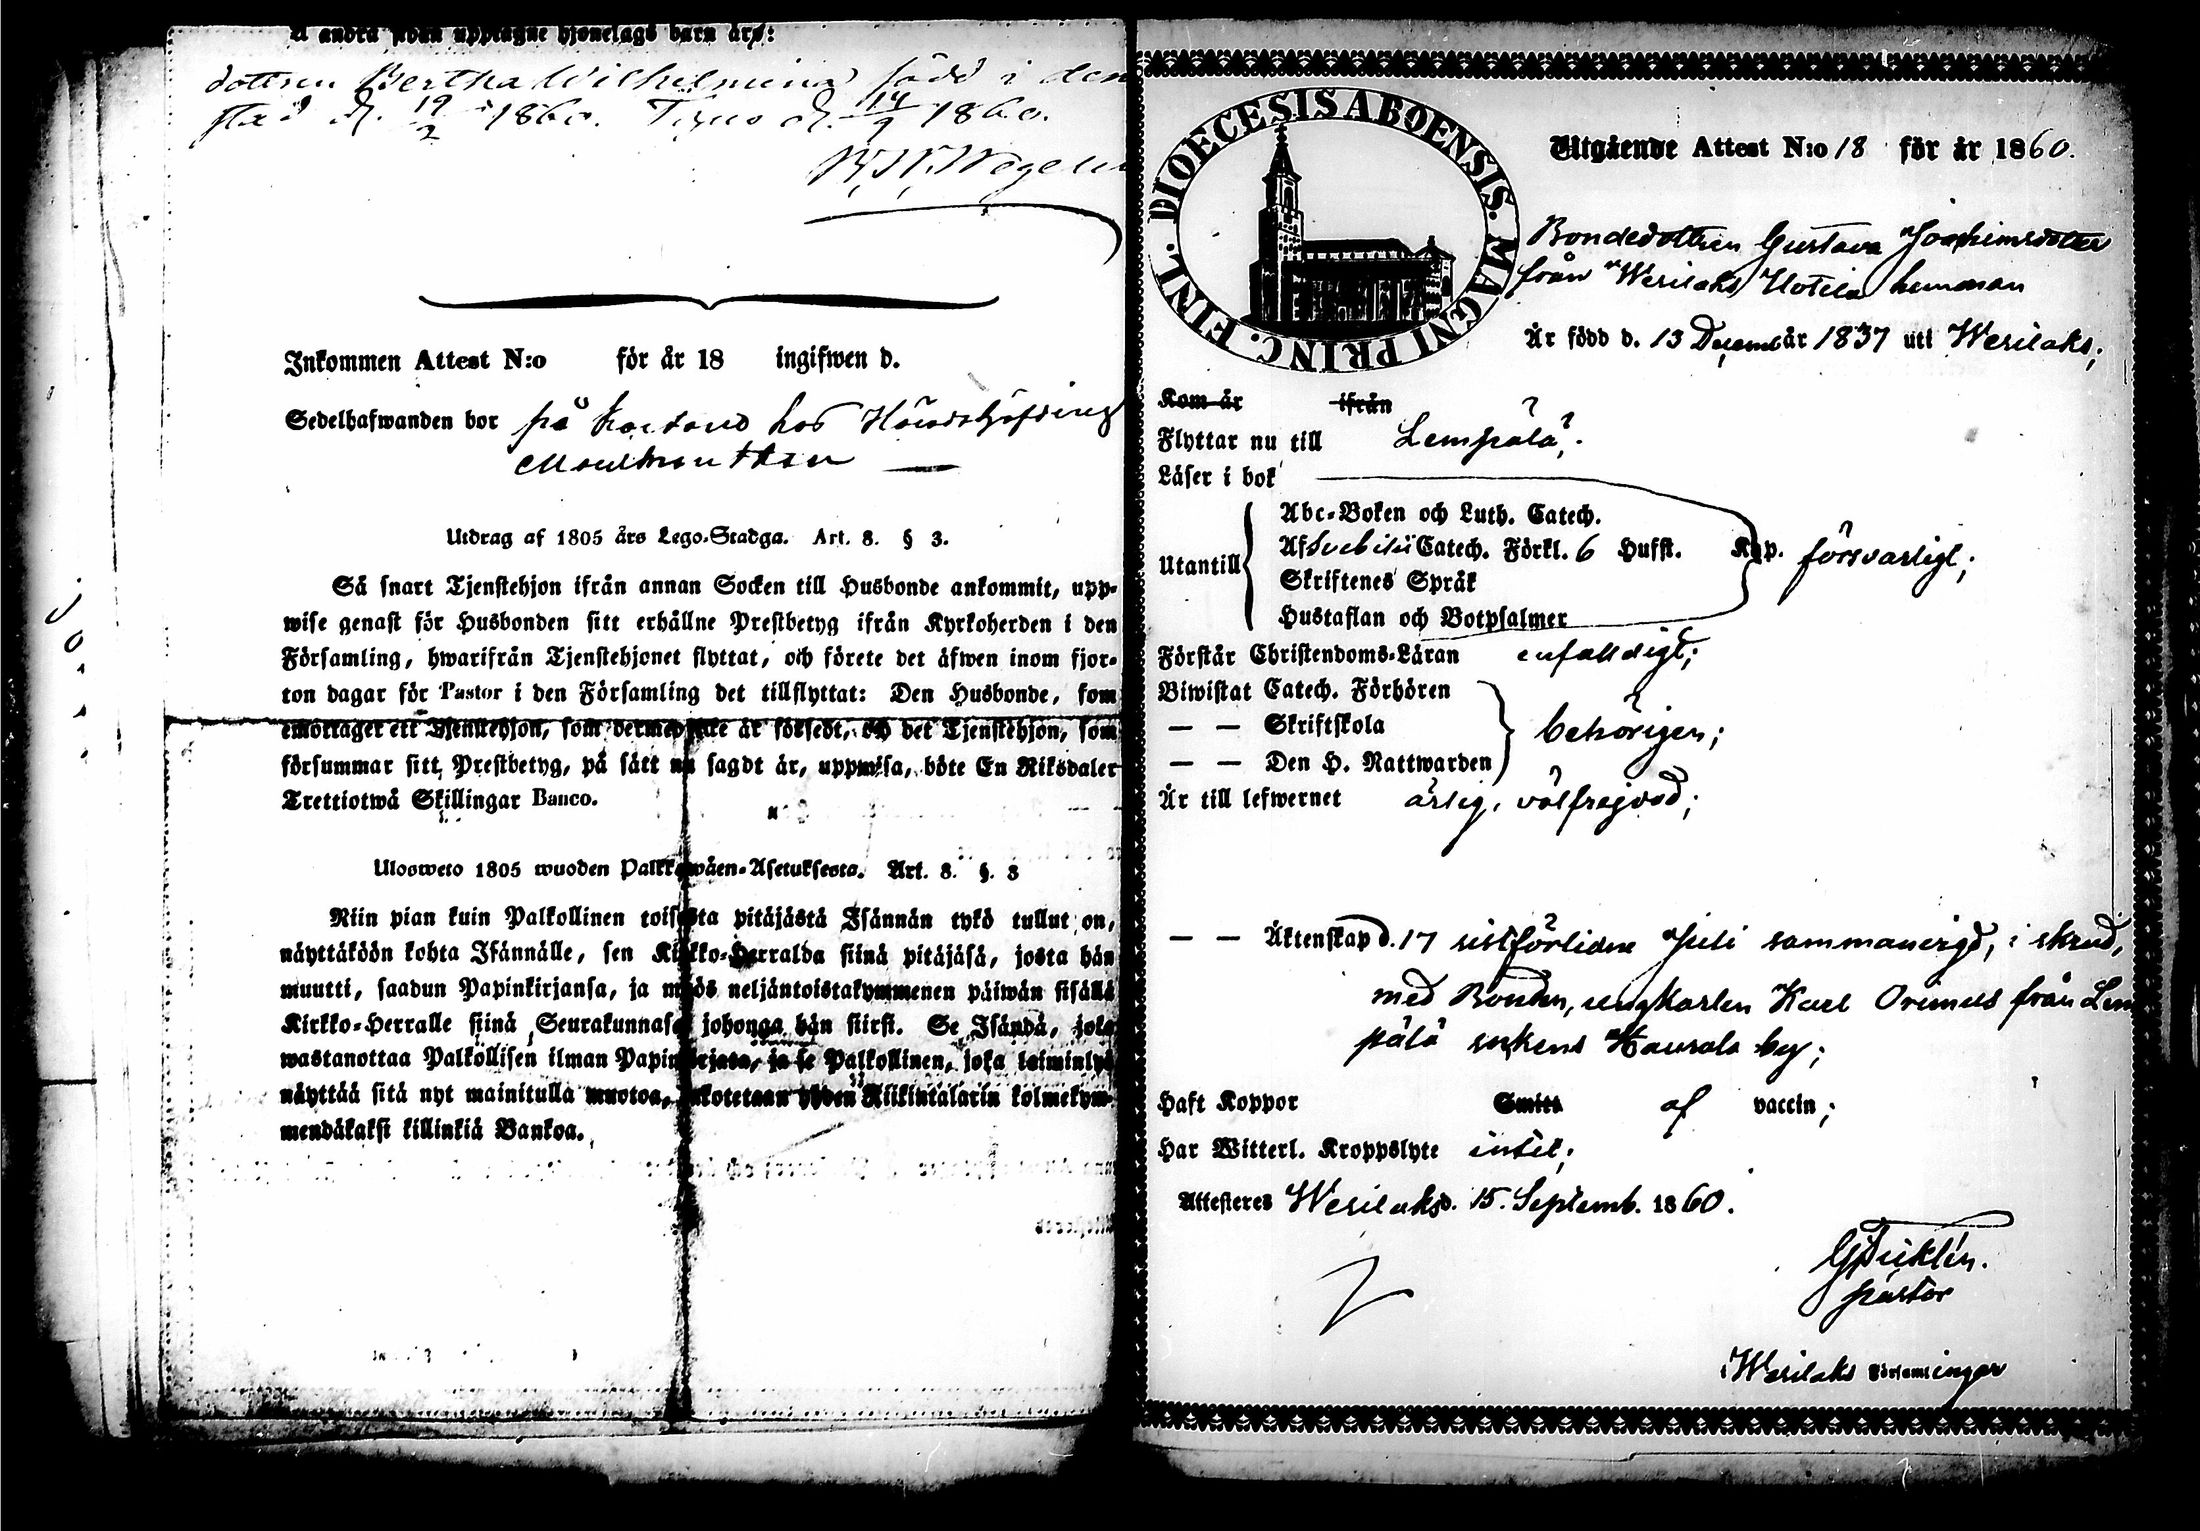 å andra sidan upptagne hjonelags barn äro:
dottren Bertha Wilhelmina född i den
stad d. 19/2 1860. d. 14/9 1860.
Inkommen Attest N:o för år 18 ingifwen d.
Sedelhafwanden bor på hos Häradshöfding
Utdrag af 1805 års Lego-Stadga. Art. 8. § 3.
Så snart Tjenstehjon ifrån annan Socken till Husbonde ankommit, upp-
wise genast för Husbonden sitt erhållne Prestbetyg ifrån Kyrkoherden i den
Församling, hwarifrån Tjenstehjonet flyttat, och förete det äfwen inom fjor-
ton dagar för Pastor i den Församling det tillflyttat: Den Husbonde, som
emottager ett Tjenstehjon, som dermed icke är försedt, och det Tjenstehjon, som
försummar sitt Prestbetyg, på sätt nu sagdt är, uppwisa, böte En Riksdaler
Trettiotwå Skillingar Banco.
Ulosweto 1805 wuoden Palkkawäen-Asetuksesta. Art. 8. §. 3
Niin pian kuin Palkollinen toisesta pitäjästä Isännän tykö tullut on,
näyttäköön kohta Isännälle, sen Kirkko-Herralda siinä pitäjäsä, josta hän
muutti, saadun Papinkirjansa, ja myös neljäntoistakymmenen päiwän sisällä
Kirkko-Herralle siinä Seurakunnasa johonga hän siirsi. Se Isändä, joka
wastanottaa Palkollisen ilman Papinkirjata, ja se Palkollinen, joka laiminlyö
näyttää sitä nyt mainitulla muotoa, sakotetaan yhden Riikintalarin kolmekym-
mendäkaksi killinkiä Bankoa.
DIOECESIS ABOENSIS. MAGNI PRINC. FINL.
Utgående Attest N:o 18 för år 1860.
Bondedottren Gustava Joachimsdotter
från Wesilaks Hotila hemman
Är född d. 13 Decemb år 1837 uti Wesilaks;
Kom år ifrån
Flyttar nu till Lempälä;
Läser i bok
Abc-Boken och Luth. Catech.
Utantill Af Svebilii Catech. Förkl. 6 Hufst. Kap. försvarligt;
Skriftenes Språk
Hustaflan och Botpsalmer
Förstår Christendoms-Läran enfaldigt;
Biwistat Catech. Förhören
— — Skriftskola behörigen;
— — Den H. Nattwarden
Är till lefwernet ärlig, välfrejdad;
— — Äktenskap d. 17 sistförlidne Juli sammanvigd, i skrud,
med Bonden, ungkarlen Karl Orimus från Lem
pälä sockens Haurala by;
Haft Koppor Smitt af vaccin;
Har Witterl. Kroppslyte intet;
Attesteres Wesilaks d. 15. Septemb. 1860.
pastor
i Wesilaks Församlingar